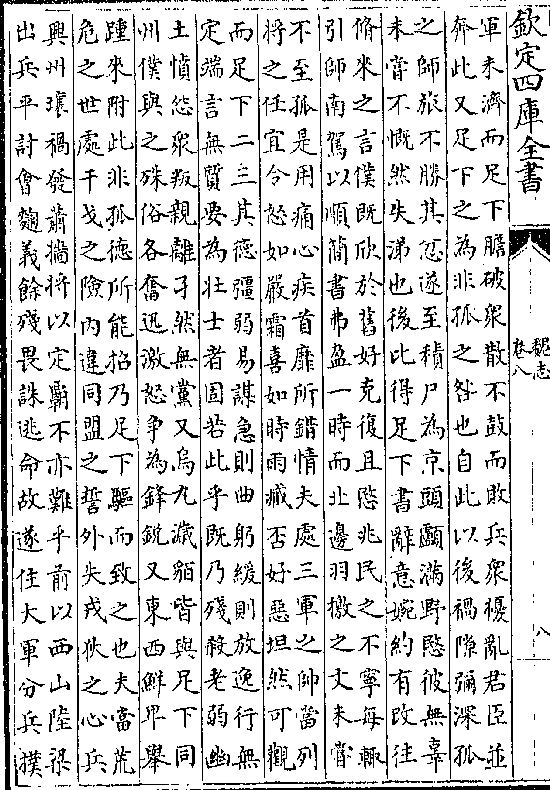 欽定四庫全書
魏志
卷八
八
軍未濟而足下膽破衆散不鼓而敗兵衆擾亂君臣並
奔此又足下之為非孤之咎也自此以後禍隙彌深孤
之師旅不勝其忿遂至積尸為京頭顱滿野愍彼無辜
未嘗不慨然失涕也後比得足下書辭意婉約有改往
脩來之言僕既欣於舊好克復且愍兆民之不寧每輒
引師南駕以順簡書弗盈一時而北邊羽檄之文未嘗
不至孤是用痛心疾首靡所錯情夫處三軍之帥當列
將之任宜令怒如嚴霜喜如時雨臧否好惡坦然可觀
而足下二三其德彊弱易謀急則曲躬緩則放逸行無
定端言無質要為壯士者固若此乎既乃殘殺老弱幽
土憤怨衆叛親離孑然無黨又烏九濊貊皆與足下同
州僕與之殊俗各奮迅激怒爭為鋒銳又東西鮮卑舉
踵來附此非孤德所能招乃足下驅而致之也夫當荒
危之世處干戈之險內違同盟之誓外失戎狄之心兵
興州壤禍發蕭牆將以定霸不亦難乎前以西山陸梁
出兵平討會麴義餘殘畏誅逃命故遂住大軍分兵撲